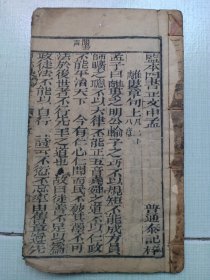 監本四書正文中孟
離婁章句上
普通泰記梓
孟子曰離婁之明公輸子之巧不以規矩不能成方員
師曠之聰不以六律不能正五音堯舜之道不以仁政
不能平治天下今有仁心仁聞而民不被其澤不可
法於後世者不行先王之道也故曰徒善不足以為
政徒法不能以自行詩云不愆不忘率由舊章遵先